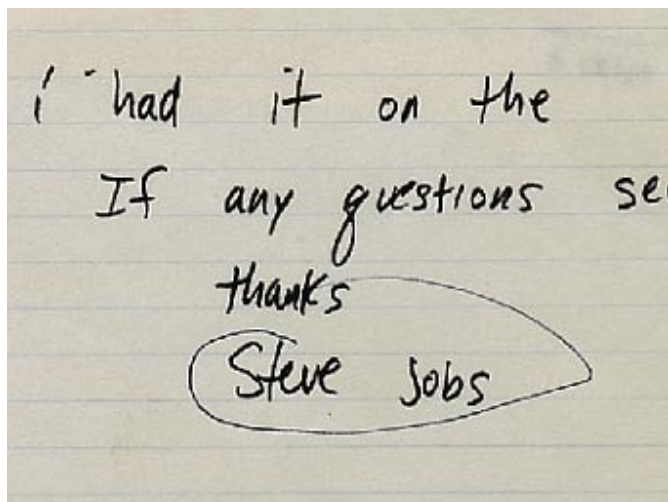 i had it on the
If any questions se
thanks
Steve Jobs